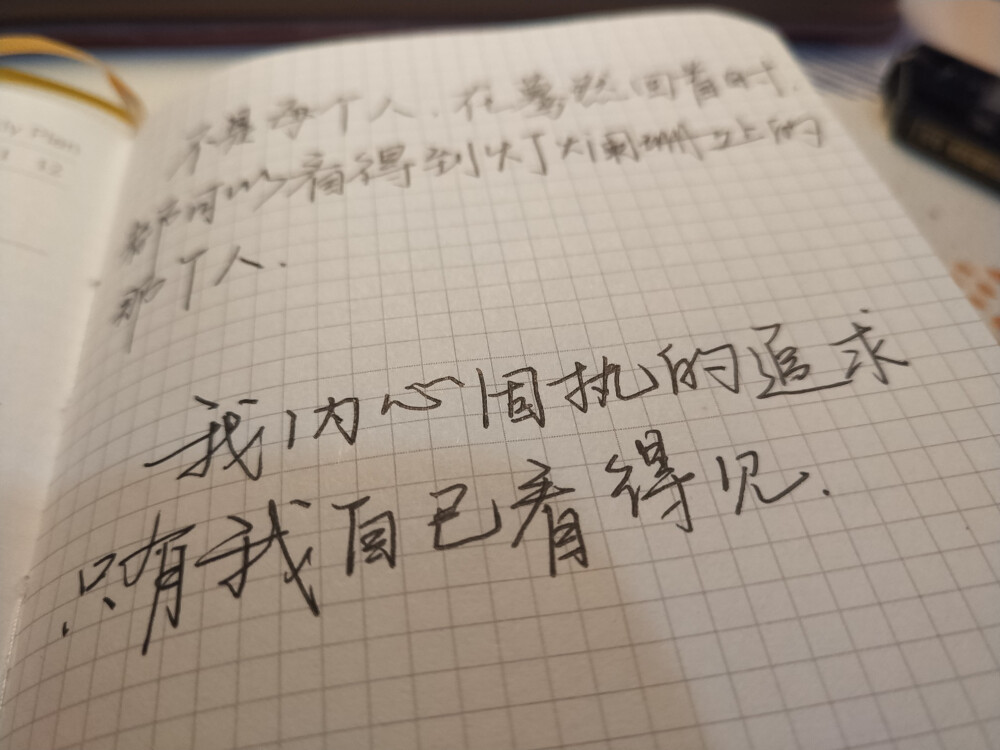 ly Plan
12
不是每个人.在蓦然回首时.
都可以看得到灯火阑珊之上的
那个人.
我内心固执的追求
只有我自己看得见.